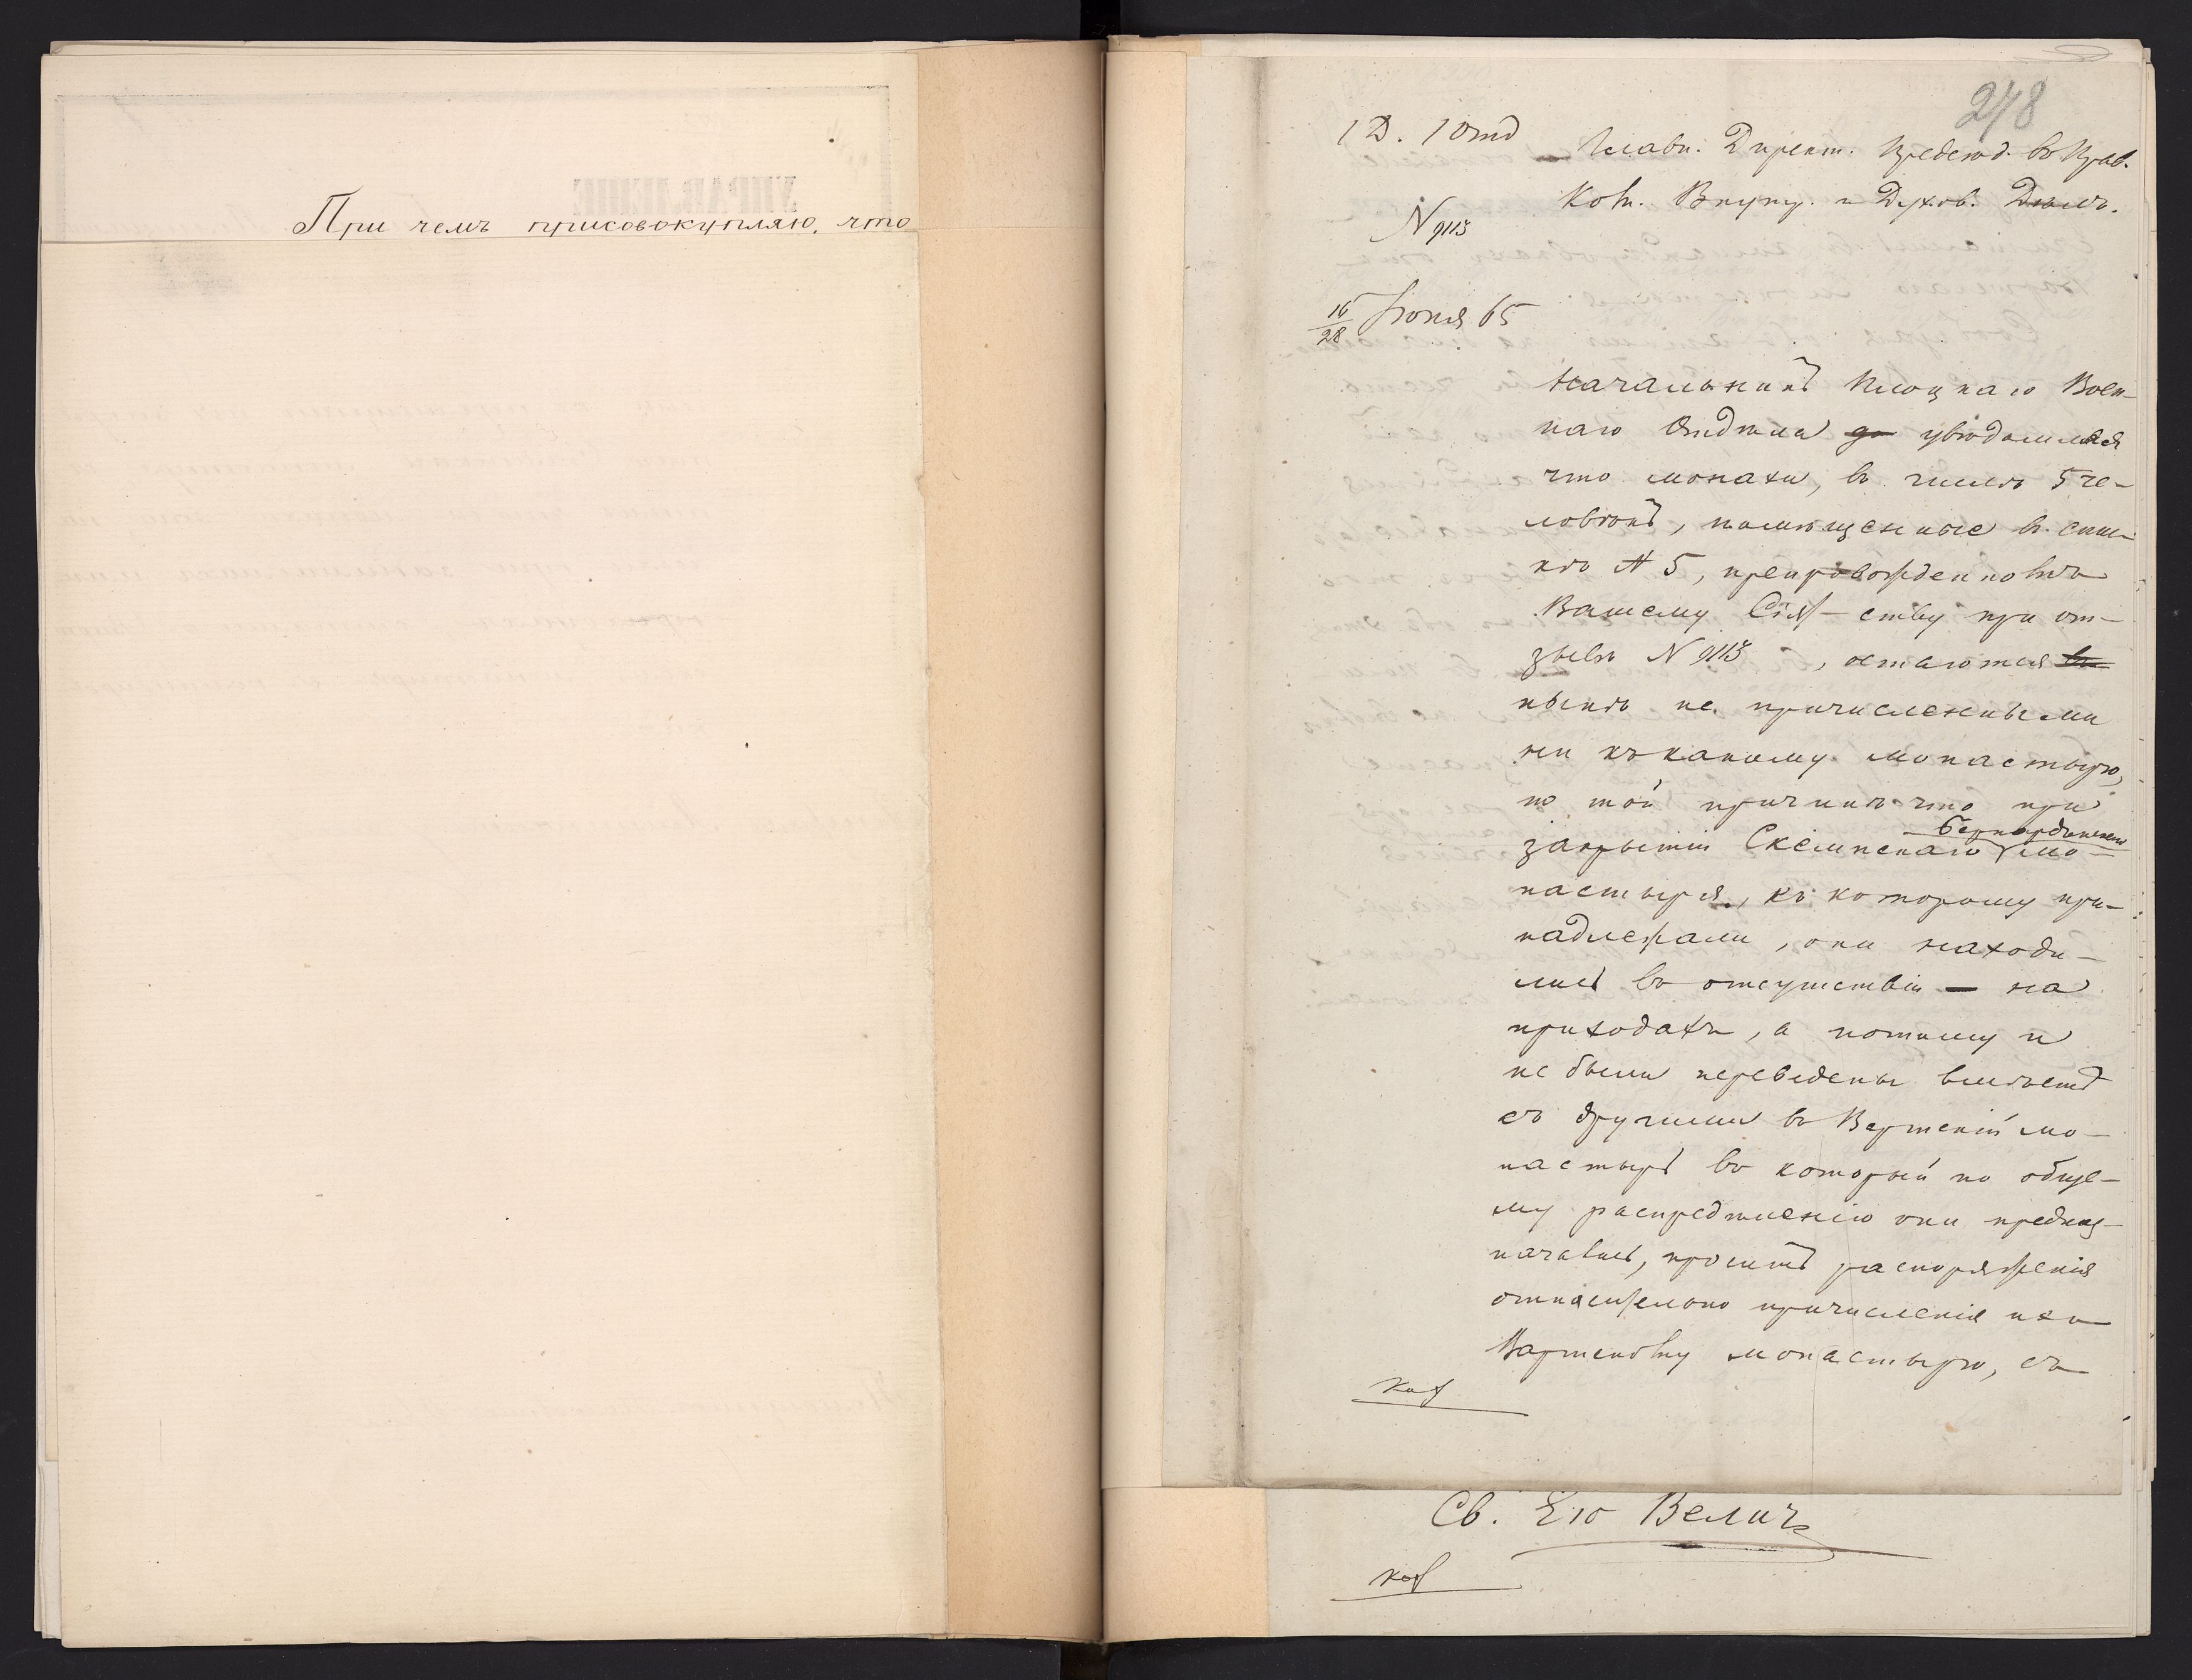 При чемъ присовокупляю, что
248
1 Д. 1 Отд
Главн. Директ. Предсѣд. въ Прав.
Ком. Внутр. и Духов. Дѣлъ.
N 9113
16/28 Іюня 65
Начальникъ Плоцкаго Воен-
наго Отдѣла увѣдомляя
что монахи, въ числѣ 5 че-
ловѣкъ, помѣщенные въ спис-
кѣ № 5, препровожденномъ
Вашему Сія-ству при от-
зывѣ N 9113, остаются
нынѣ не причисленными
ни къ какому монастырю,
по той причинѣ что при
закрытіи Скемпскаго Бернардинскаго мо-
настыря, къ которому при-
надлежали, они находи-
лись въ отсутствіи — на
приходахъ, а потому и
не были переведены вмѣстѣ
съ другими въ Вартскій мо-
настырь въ который по обще-
му распредѣленію они предназ-
начались, проситъ распоряженія
относительно причисленія ихъ
Вартскому монастырю, съ
Св. Его Велич